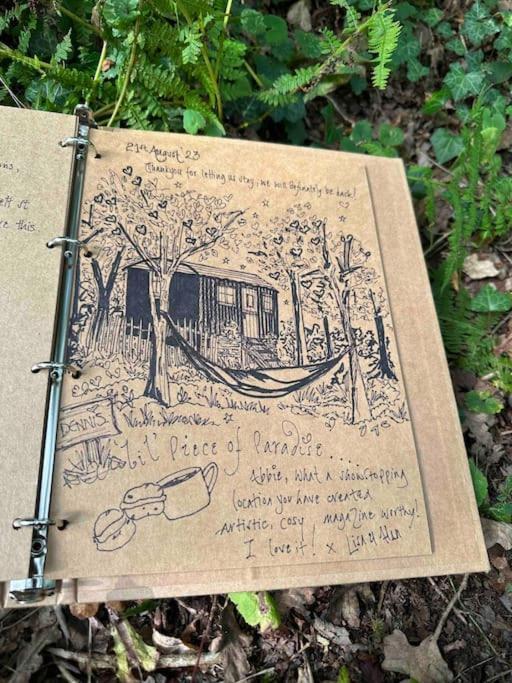 21st August 23
Thankyou for letting us stay, we will definately be back!
ons,
elf st
re this
DENNIS
'Lil' Piece of Paradise....
Abbie, what a showstopping
location you have created
Artistic, cosy magazine worthy!
I love it! x Lisa &